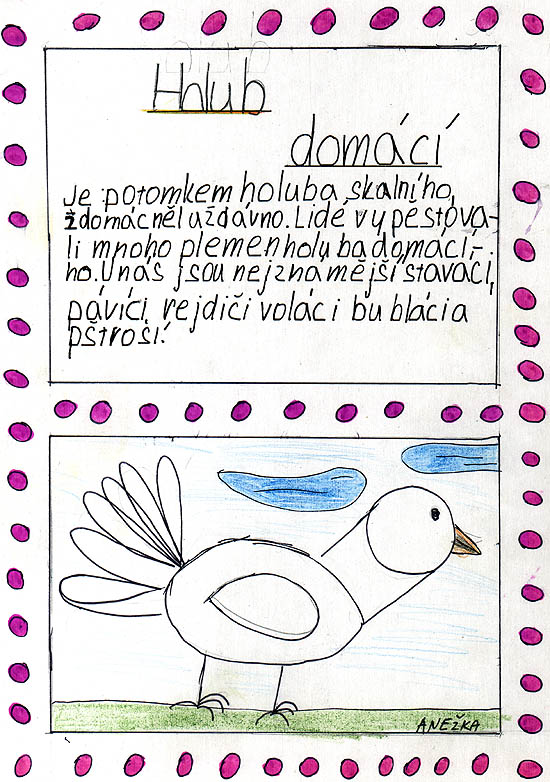 Holub
domácí
Je potomkem holuba skalního,
zdomácněl už dávno. Lidé vypěstova-
li mnoho plemen holuba domácí-
ho. U nás jsou nejznámější stavači,
pávíci, rejdiči voláci bubláci a
pštroši.
ANEŽKA